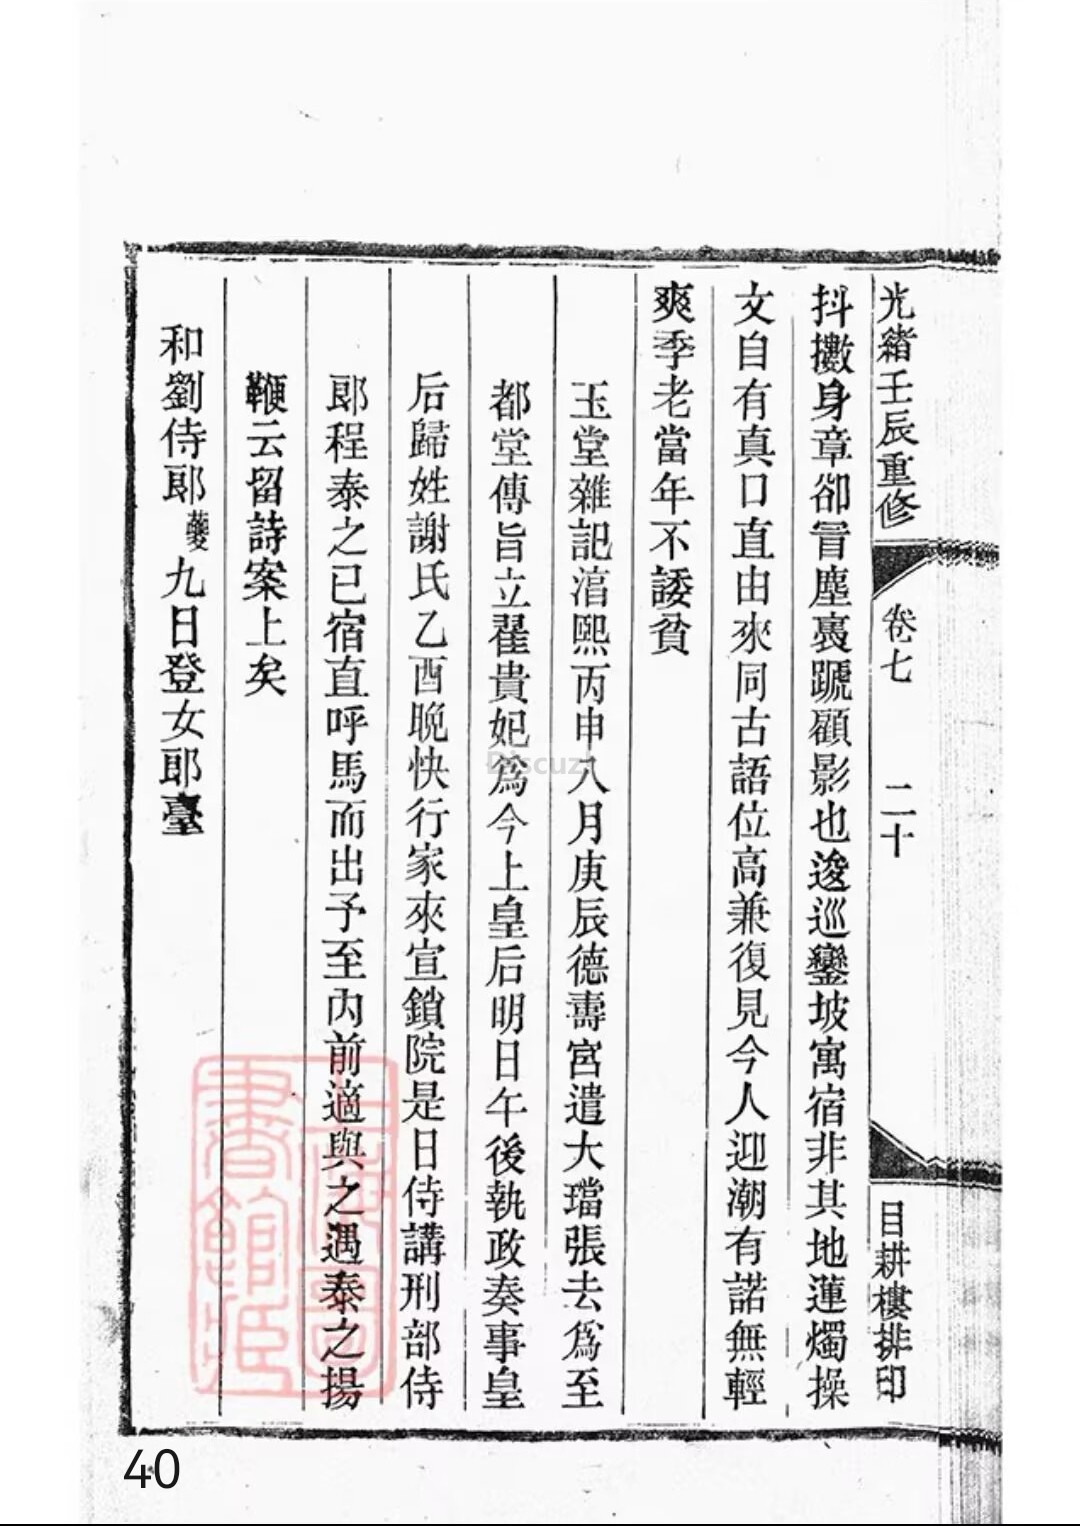 光緒壬辰重修
卷七
二十
目耕樓排印
抖擻身章卻冒塵裏蹏顧影也逡巡鑾坡寓宿非其地蓮燭操
文自有真口直由來同古語位高兼復見今人迎潮有諾無輕
爽季老當年不諉貧
玉堂雜記湻熙丙申八月庚辰德壽宮遣大璫張去爲至
都堂傳旨立翟貴妃爲今上皇后明日午後執政奏事皇
后歸姓謝氏乙酉晚快行家來宣鎖院是日侍講刑部侍
郎程泰之已宿直呼馬而出予至內前適與之遇泰之揚
鞭云留詩案上矣
和劉侍郎夔九日登女郎臺
上海圖
書館藏
Discuz!
40